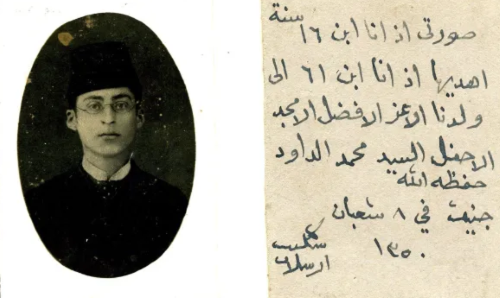 صورتي اذ انا ابن ١٦ سنة
اهديها اذ انا ابن ٦١ الى
ولدنا الاعز الافضل الامجد
الاحفل السيد محمد الداود
حفظه الله
جنيف في ٨ شعبان
١٣٥٠
شكيب
ارسلان